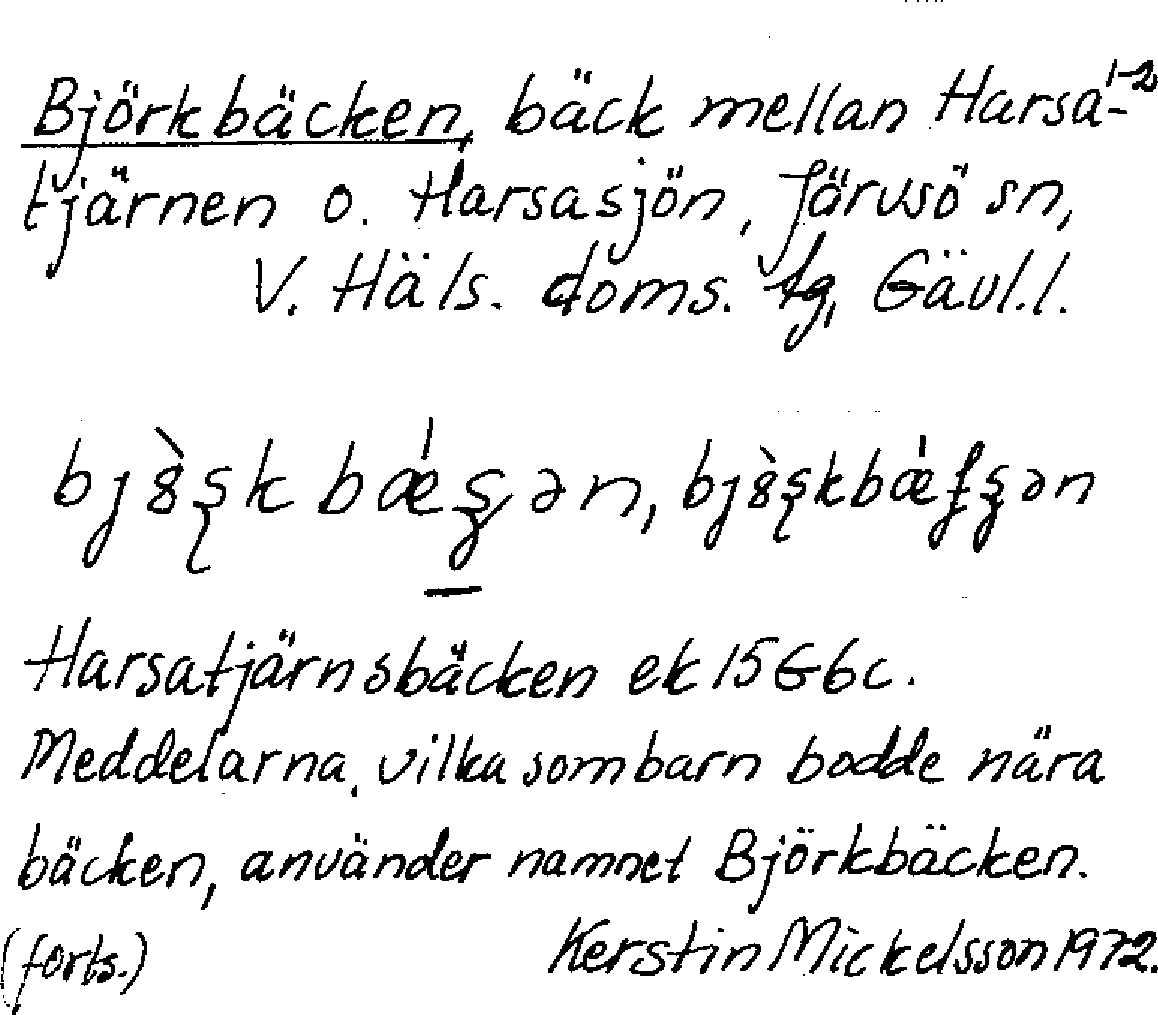 Björkbäcken, bäck mellan Harsa-¹⁻²
tjärnen o. Harsasjön, Järvsö sn,
V. Häls. doms. tg, Gävl. l.
Harsatjärnsbäcken ek 15G6c.
Meddelarna, vilka som barn bodde nära
bäcken, använder namnet Björkbäcken.
(forts.) Kerstin Mickelsson 1972.